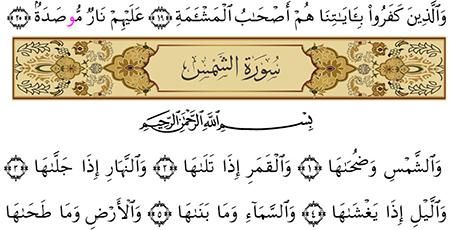 وَٱلَّذِينَ كَفَرُوا۟ بِـَٔايَـٰتِنَا هُمْ أَصْحَـٰبُ ٱلْمَشْـَٔمَةِ ﴿١٩﴾ عَلَيْهِمْ نَارٌ مُّوصَدَةٌۢ ﴿٢٠﴾
سُورَةُ الشَّمْسِ
بِسْمِ اللَّهِ الرَّحْمَٰنِ الرَّحِيمِ
وَٱلشَّمْسِ وَضُحَىٰهَا ﴿١﴾ وَٱلْقَمَرِ إِذَا تَلَىٰهَا ﴿٢﴾ وَٱلنَّهَارِ إِذَا جَلَّىٰهَا ﴿٣﴾
وَٱلَّيْلِ إِذَا يَغْشَىٰهَا ﴿٤﴾ وَٱلسَّمَآءِ وَمَا بَنَىٰهَا ﴿٥﴾ وَٱلْأَرْضِ وَمَا طَحَىٰهَا